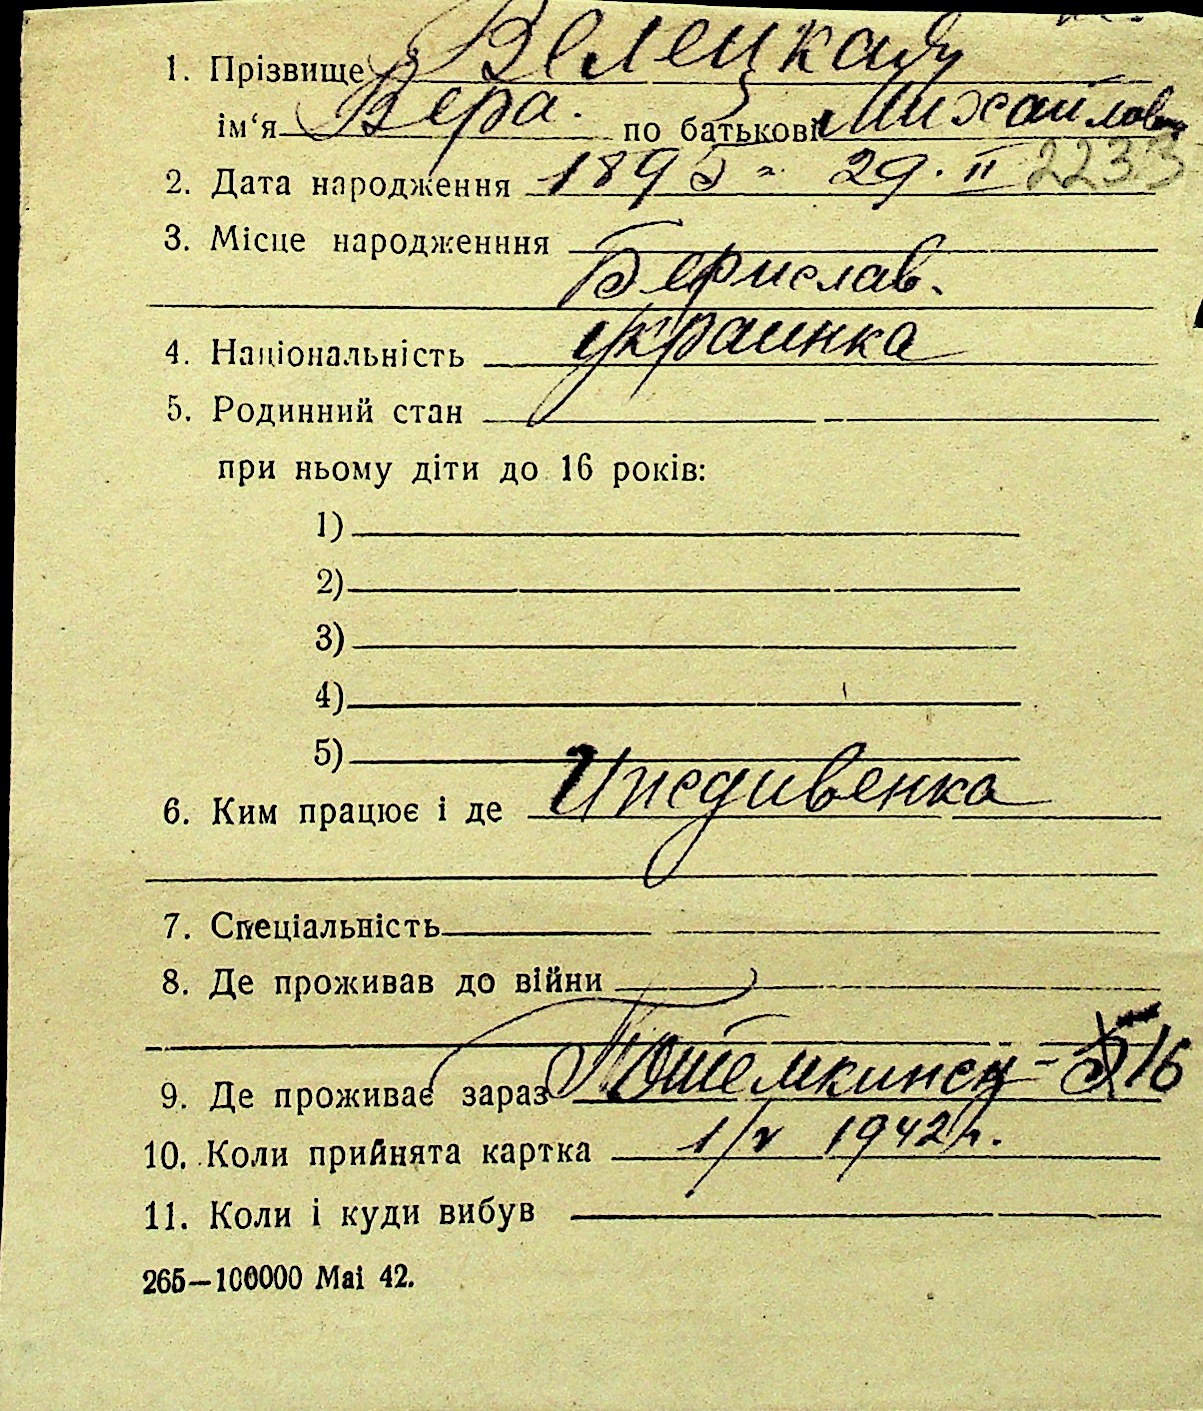 1. Прізвище Велецкая
ім‘я Вера. по батькові Михайловн
2. Дата народження 1895 29. II 2233
3. Місце народженння
Берислав.
4. Національність украинка
5. Родинний стан
при ньому діти до 16 років:
1)
2)
3)
4)
5)
6. Ким працює і де Иждивенка
7. Спеціальність
8. Де проживав до війни
9. Де проживає зараз Потемкинск - 16
10. Коли прийнята картка 1/V 1942 г.
11. Коли і куди вибув
265—100000 Mai 42.